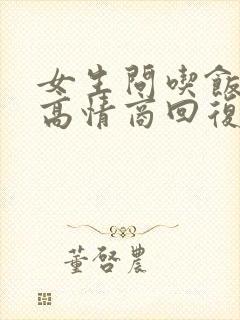 女生問喫飯
高情商回復
董啓農